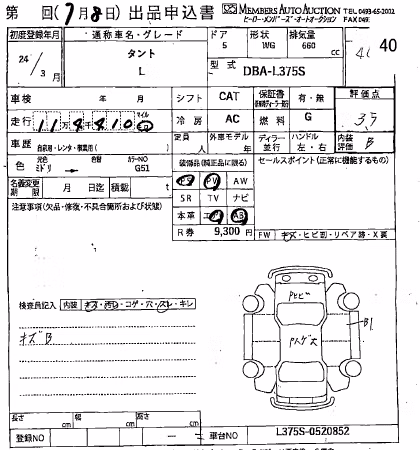 第 回(7月8日)出品申込書
MEMBERS AUTO AUCTION TEL 0493-65-2002
ヒーロー・メンバーズ・オートオークション FAX 0493
初度登録年月 通称車名・グレード ドア 形状 排気量
24/3月 タント 5 WG 660 cc 40
L 型式 DBA-L375S
車検 年 月 シフト CAT 保証書 有・無 評価点
走行 冷房 AC 燃料 G
定員 人 外車モデル 年 ディーラー 並行 ハンドル 左・右 内装評価 B
車歴 自家用・レンタ・事業用( )
色 元色 ミドリ 色替 カラーNO G51
装備品(純正品に限る) セールスポイント(正常に機能するもの)
名義変更期限 月 日迄 積載 t
PS PW AW
SR TV ナビ
本革 エアB AB
注意事項(欠品・修復・不具合箇所および状態)
R券 9,300円
FW キズ・ヒビ割・リペア跡・X要
検査員記入 内装 キズ・汚レ・コゲ・穴・スレ・キレ
キズB
Pヒビ
B1
長さ cm 幅 cm 高さ cm
登録NO 車台NO L375S-0520852